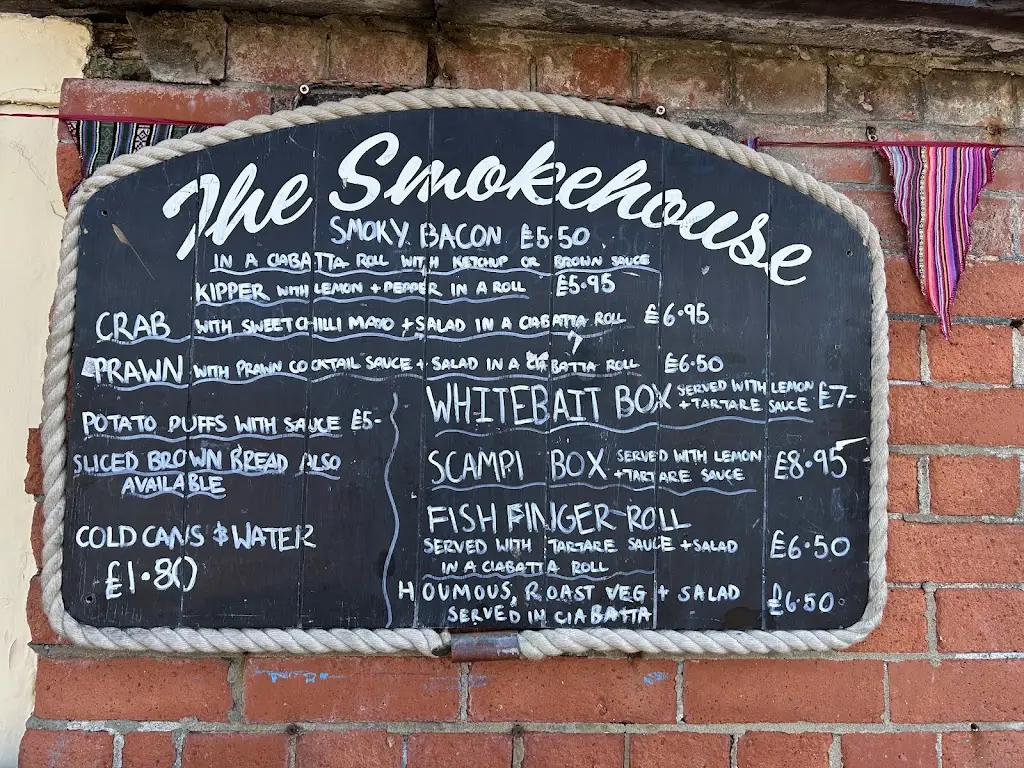 The Smokehouse
SMOKY BACON £5.50
IN A CIABATTA ROLL WITH KETCHUP OR BROWN SAUCE
KIPPER WITH LEMON + PEPPER IN A ROLL £5.95
CRAB WITH SWEET CHILLI MAYO + SALAD IN A CIABATTA ROLL £6.95
PRAWN WITH PRAWN COCKTAIL SAUCE + SALAD IN A CIABATTA ROLL £6.50
POTATO PUFFS WITH SAUCE £5-
SLICED BROWN BREAD ALSO
AVAILABLE
COLD CANS & WATER
£1.80
WHITEBAIT BOX SERVED WITH LEMON
+ TARTARE SAUCE £7-
SCAMPI BOX SERVED WITH LEMON
+ TARTARE SAUCE £8.95
FISH FINGER ROLL
SERVED WITH TARTARE SAUCE + SALAD £6.50
IN A CIABATTA ROLL
HOUMOUS, ROAST VEG + SALAD £6.50
SERVED IN CIABATTA